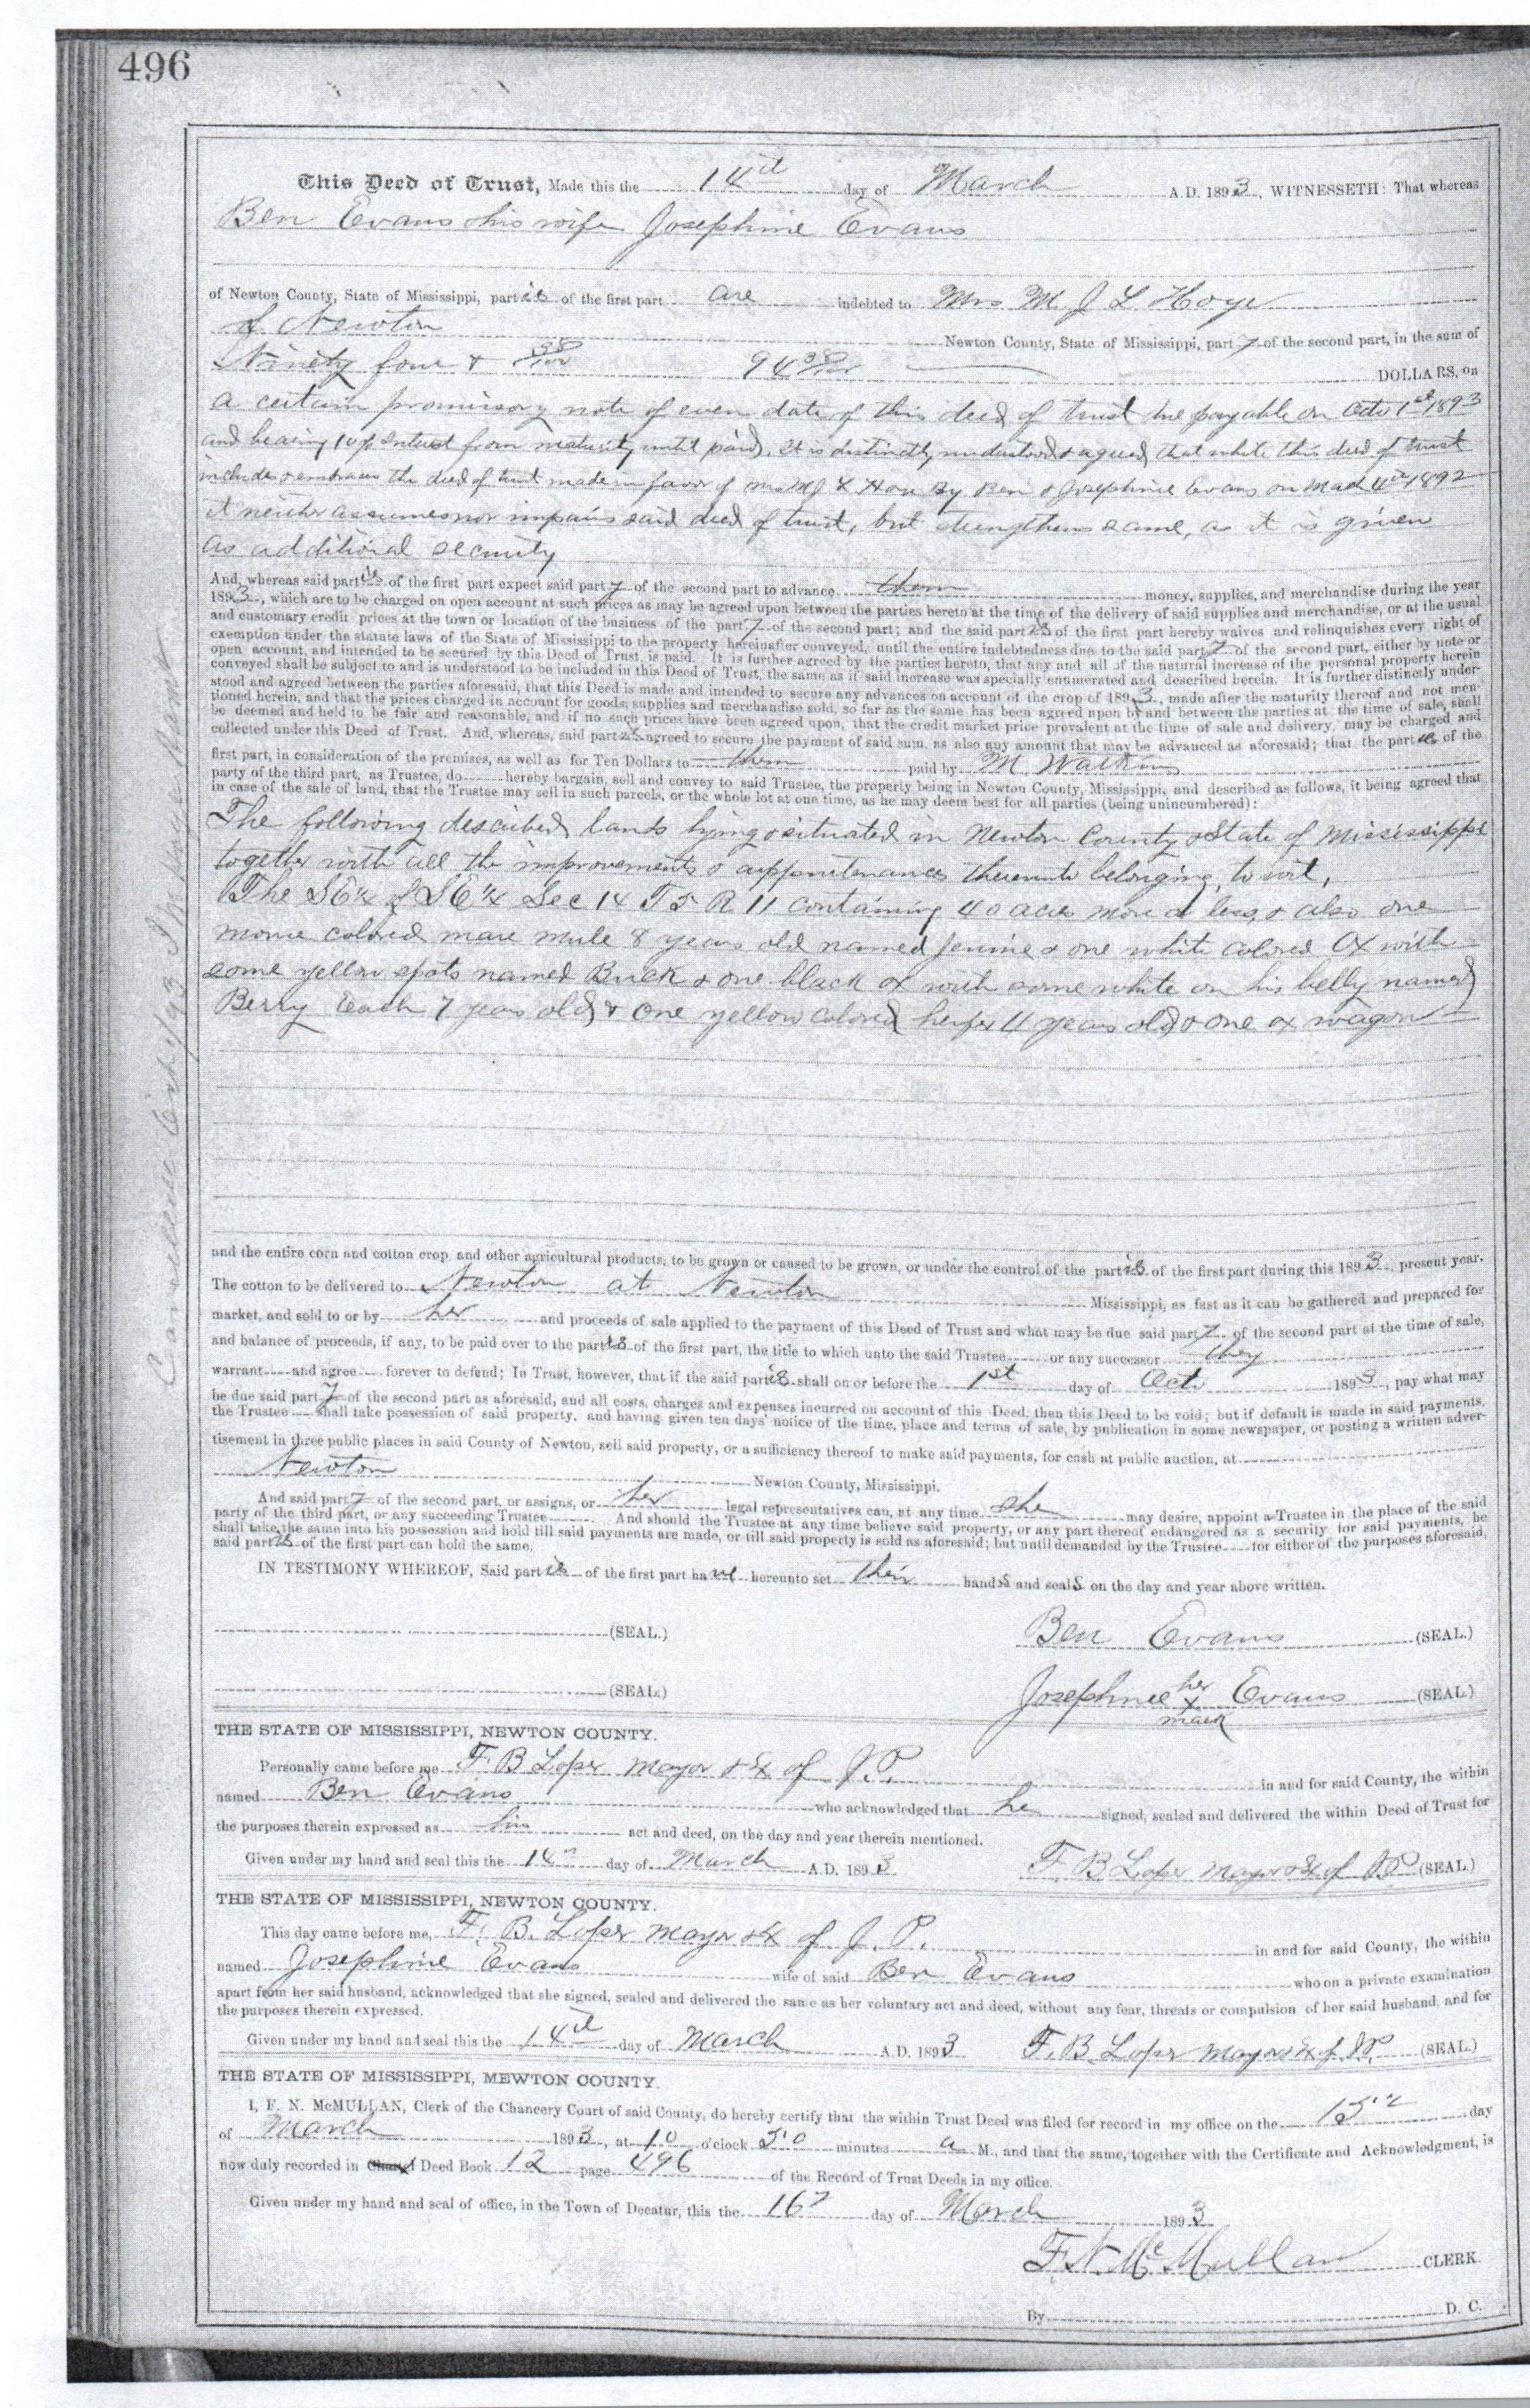 496
This Deed of Trust, Made this the 14th day of March A.D. 1893, WITNESSETH: That whereas
Ben Evans & his wife Josephine Evans
of Newton County, State of Mississippi, parties of the first part are indebted to Mrs M J L Hoye
of Newton Newton County, State of Mississippi, party of the second part, in the sum of
Ninety four & 38/100 94 38/100 DOLLARS, on
a certain promissory note of even date of this deed of trust due payable on Octo 1st 1893
and bearing 10 p Interest from maturity until paid. It is distinctly understood & agreed that while this deed of trust
includes & embraces the deed of trust made in favor of Mrs M J L Hoye By Ben & Josephine Evans on Mach 4th 1892
it neither assumes nor impairs said deed of trust, but strengthens same, as it is given
as additional security
And, whereas said parties of the first part expect said party of the second part to advance them money, supplies, and merchandise during the year
1893, which are to be charged on open account at such prices as may be agreed upon between the parties hereto at the time of the delivery of said supplies and merchandise, or at the usual
and customary credit prices at the town or location of the business of the party of the second part; and the said parties of the first part hereby waives and relinquishes every right of
exemption under the statute laws of the State of Mississippi to the property hereinafter conveyed, until the entire indebtedness due to the said party of the second part, either by note or
open account, and intended to be secured by this Deed of Trust, is paid. It is further agreed by the parties hereto, that any and all of the natural increase of the personal property herein
conveyed shall be subject to and is understood to be included in this Deed of Trust, the same as if said increase was specially enumerated and described herein. It is further distinctly under-
stood and agreed between the parties aforesaid, that this Deed is made and intended to secure any advances on account of the crop of 1893, made after the maturity thereof and not men-
tioned herein, and that the prices charged in account for goods, supplies and merchandise sold, so far as the same has been agreed upon by and between the parties at the time of sale, shall
be deemed and held to be fair and reasonable, and if no such prices have been agreed upon, that the credit market price prevalent at the time of sale and delivery, may be charged and
collected under this Deed of Trust. And, whereas, said parties agreed to secure the payment of said sum, as also any amount that may be advanced as aforesaid; that the parties of the
first part, in consideration of the premises, as well as for Ten Dollars to them paid by M. Watkins
party of the third part, as Trustee, do hereby bargain, sell and convey to said Trustee, the property being in Newton County, Mississippi, and described as follows, it being agreed that
in case of the sale of land, that the Trustee may sell in such parcels, or the whole lot at one time, as he may deem best for all parties (being unincumbered):
The following described lands lying & situated in Newton County & State of Mississippi
together with all the improvements & appurtenances thereunto belonging, to wit,
The SE¼ of SE¼ Sec 14 T 5 R 11 containing 40 acres more or less, & also one
mouse colored mare mule 8 years old named Jennie & one white colored Ox with
some yellow spots named Buck & one black ox with some white on his belly named
Berry Each 7 years old & One yellow colored heifer 4 years old & one ox wagon
and the entire corn and cotton crop, and other agricultural products, to be grown or caused to be grown, or under the control of the parties of the first part during this 1893, present year.
The cotton to be delivered to Newton at Newton Mississippi, as fast as it can be gathered and prepared for
market, and sold to or by her and proceeds of sale applied to the payment of this Deed of Trust and what may be due said party of the second part at the time of sale,
and balance of proceeds, if any, to be paid over to the parties of the first part, the title to which unto the said Trustee or any successor they
warrant and agree forever to defend; In Trust, however, that if the said parties shall on or before the 1st day of Octo 1893, pay what may
be due said party of the second part as aforesaid, and all costs, charges and expenses incurred on account of this Deed, then this Deed to be void; but if default is made in said payments,
the Trustee shall take possession of said property, and having given ten days' notice of the time, place and terms of sale, by publication in some newspaper, or posting a written adver-
tisement in three public places in said County of Newton, sell said property, or a sufficiency thereof to make said payments, for cash at public auction, at
Newton Newton County, Mississippi.
And said party of the second part, or assigns, or her legal representatives can, at any time she may desire, appoint a Trustee in the place of the said
party of the third part, or any succeeding Trustee. And should the Trustee at any time believe said property, or any part thereof endangered as a security for said payments, he
shall take the same into his possession and hold till said payments are made, or till said property is sold as aforesaid; but until demanded by the Trustee for either of the purposes aforesaid,
said parties of the first part can hold the same.
IN TESTIMONY WHEREOF, Said parties of the first part have hereunto set their hands and seals on the day and year above written.
(SEAL.) Ben Evans (SEAL.)
(SEAL.) Josephine her x mark Evans (SEAL.)
THE STATE OF MISSISSIPPI, NEWTON COUNTY.
Personally came before me F. B Loper mayor & Ex of J.P. in and for said County, the within
named Ben Evans who acknowledged that he signed, sealed and delivered the within Deed of Trust for
the purposes therein expressed as his act and deed, on the day and year therein mentioned.
Given under my hand and seal this the 14th day of March A.D. 1893 F. B Loper mayor & Ex of J P (SEAL.)
THE STATE OF MISSISSIPPI, NEWTON COUNTY.
This day came before me, F. B. Loper mayor & Ex of J. P. in and for said County, the within
named Josephine Evans wife of said Ben Evans who on a private examination
apart from her said husband, acknowledged that she signed, sealed and delivered the same as her voluntary act and deed, without any fear, threats or compulsion of her said husband, and for
the purposes therein expressed.
Given under my hand and seal this the 14th day of March A.D. 1893 F. B. Loper mayor & Ex of J.P. (SEAL.)
THE STATE OF MISSISSIPPI, MEWTON COUNTY.
I, F. N. McMULLAN, Clerk of the Chancery Court of said County, do hereby certify that the within Trust Deed was filed for record in my office on the 15th day
of March 1893, at 10 o'clock 50 minutes a M., and that the same, together with the Certificate and Acknowledgment, is
now duly recorded in Deed Book 12 page 496 of the Record of Trust Deeds in my office.
Given under my hand and seal of office, in the Town of Decatur, this the 16th day of March 1893
F. N. McMullan CLERK.
By D. C.